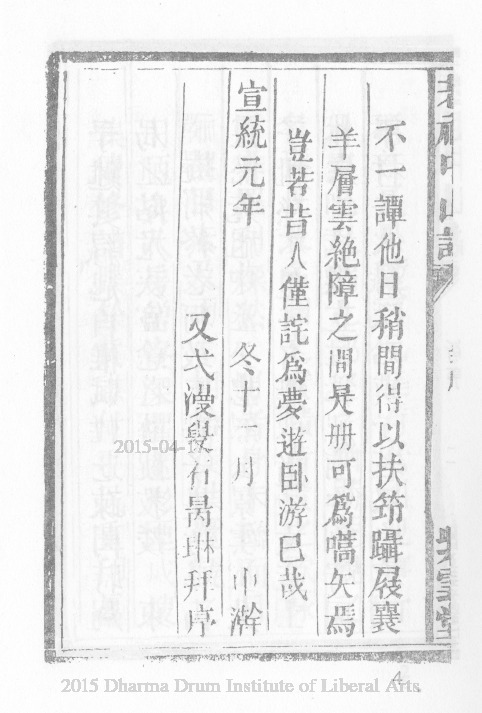 不一譚他日稍間得以扶笻躡屐襄
羊層雲絶障之間是册可爲嚆矢焉
豈若昔人僅詫爲夢遊卧游巳哉
宣統元年 冬十一月 小澣
又弌漫叟石昺琳拜序
2015-04-1
4
2015 Dharma Drum Institute of Liberal Arts